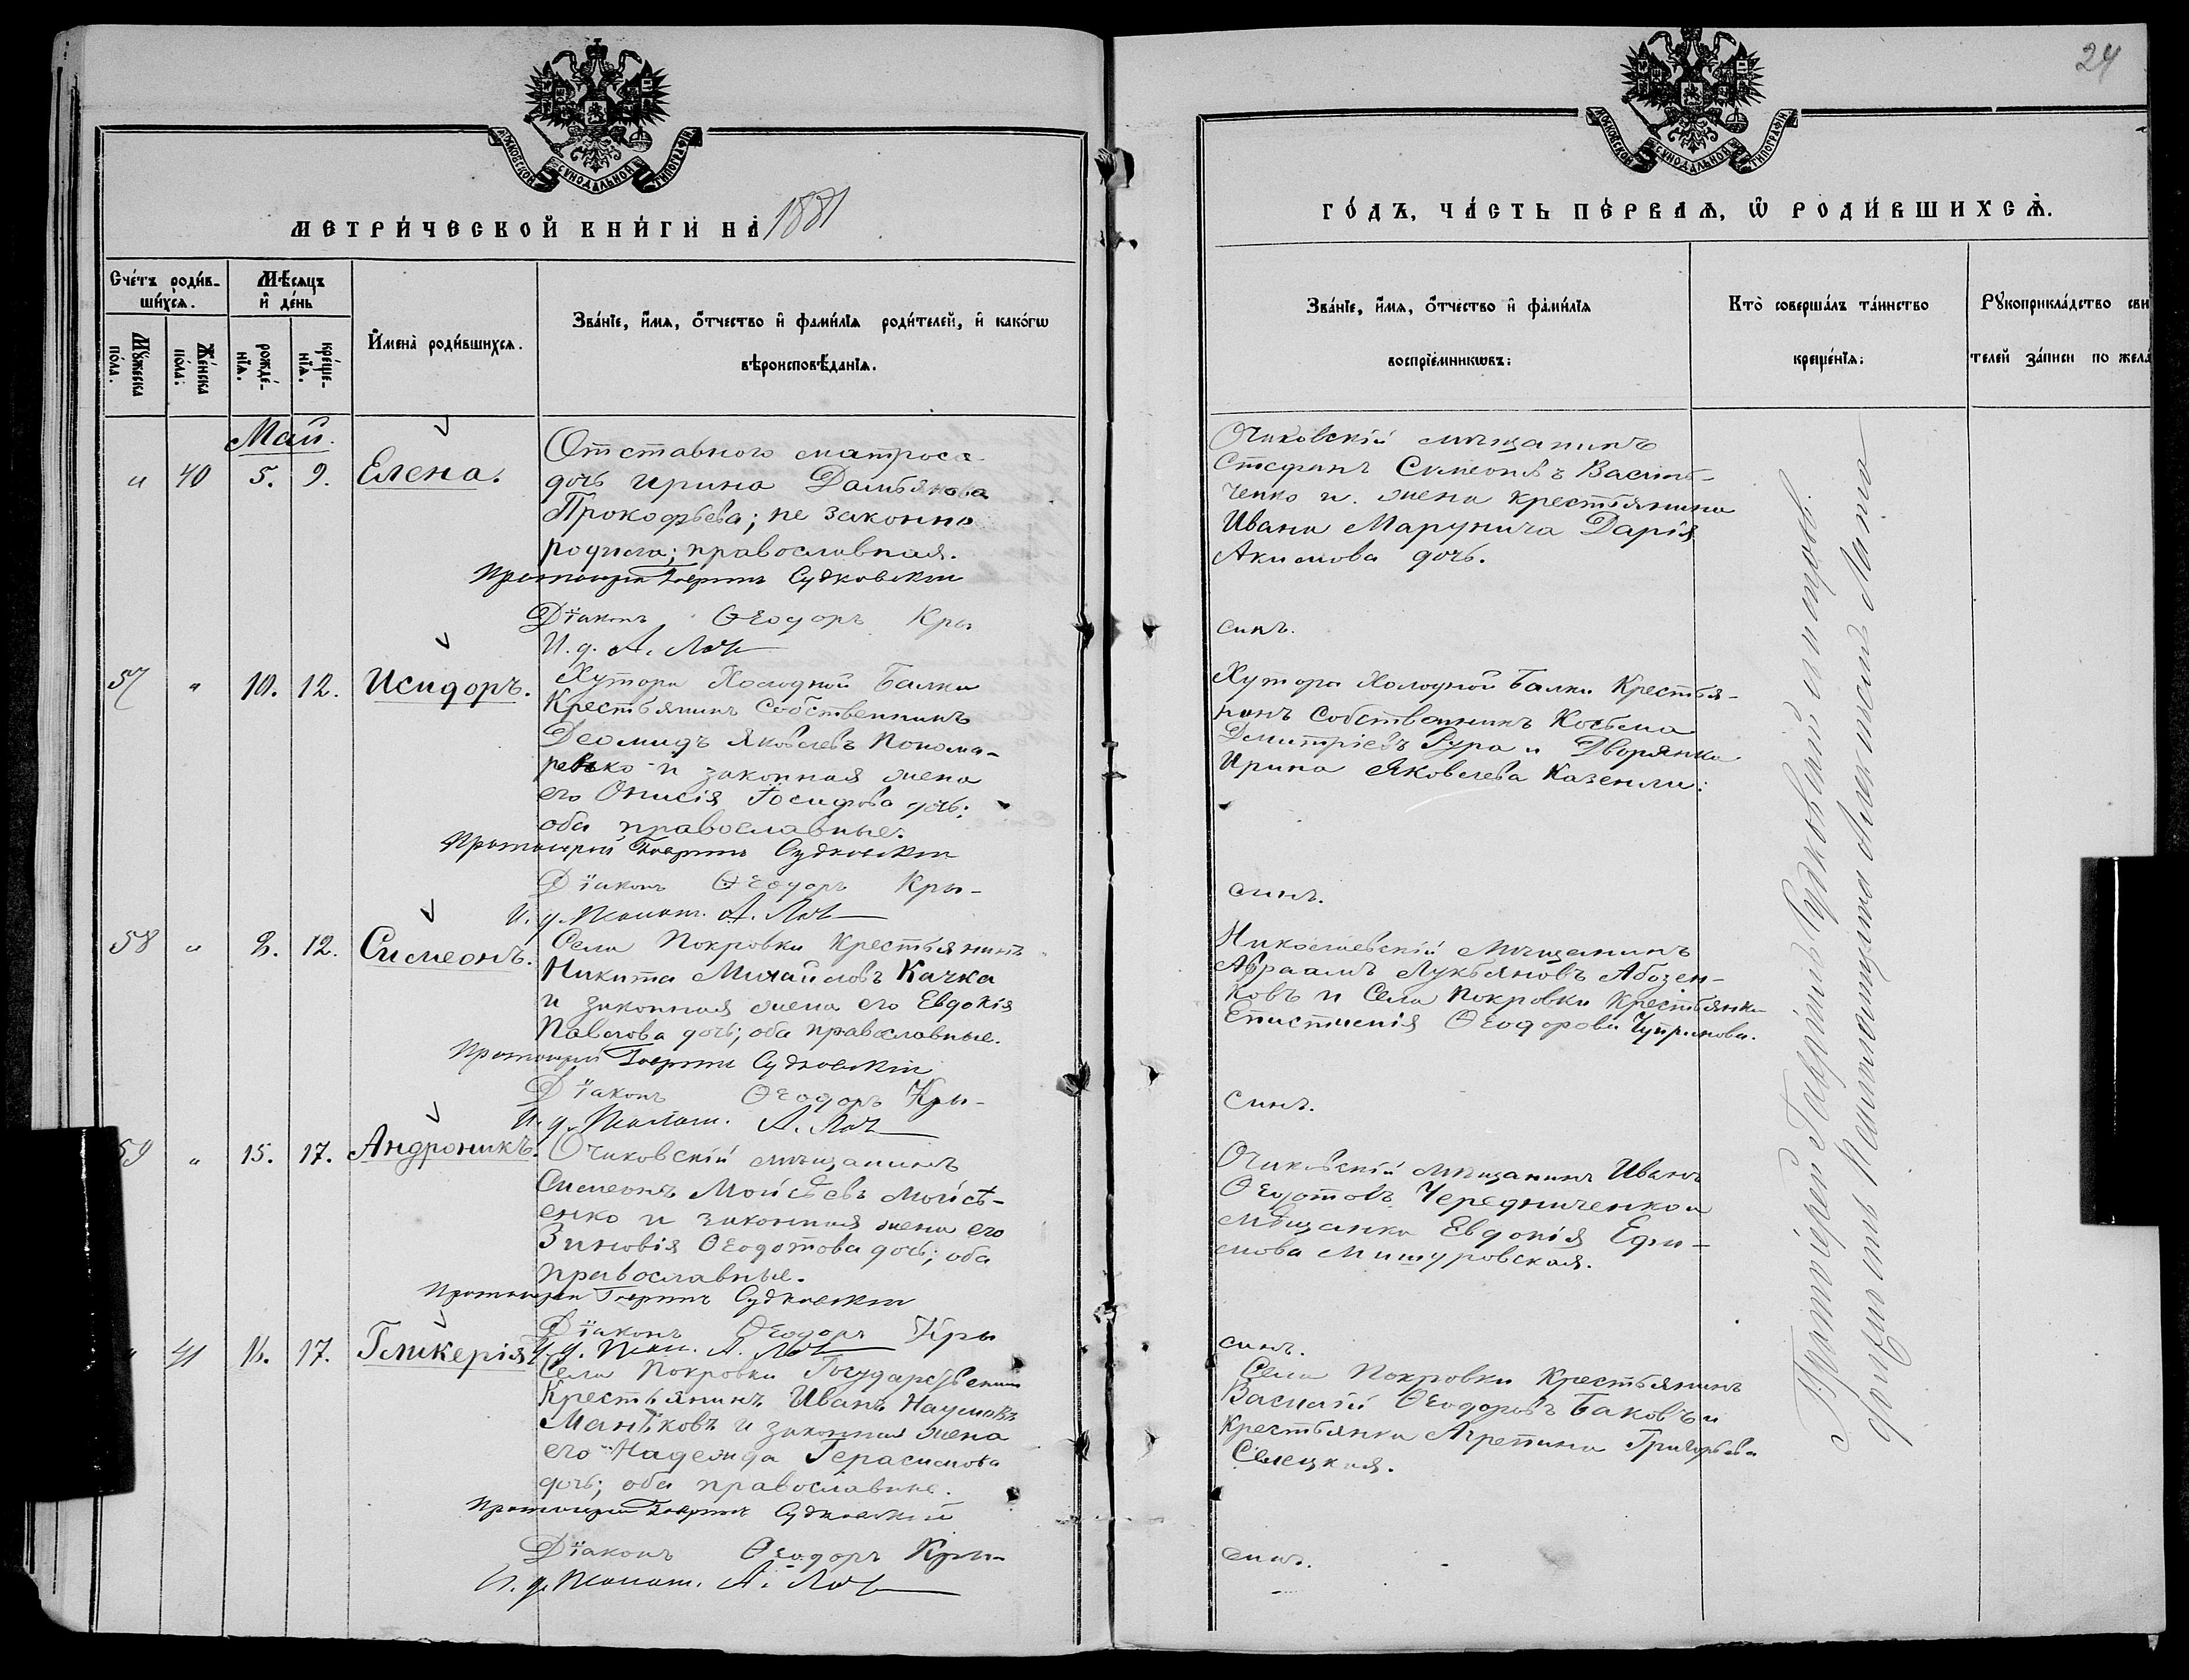 24
МОСКОВСКОЙ СѴНОДАЛЬНОЙ ТИПОГРАФІИ
МОСКОВСКОЙ СѴНОДАЛЬНОЙ ТИПОГРАФІИ
МЕТРИ́ЧЕСКОЙ КНИ́ГИ НА̀ 1881
ГО́ДЪ, ЧА́СТЬ ПЕ́РВАѦ, Ѡ҆ РОДИ́ВШИХСѦ.
Сче́тъ роди́в-
ши́хсѧ.
Мѣ́сѧцъ
и҆ де́нь
Мꙋ́жеска
по́ла.
Же́нска
по́ла:
рожде́-
нїѧ.
креще́-
нїѧ.
И҆мена̀ роди́вшихсѧ.
Зва́нїе, и҆́мѧ, ѻ҆́тчество и҆ фами́лїѧ роди́телей, и҆ како́гѡ
вѣроисповѣ́данїѧ.
Зва́нїе, и҆́мѧ, ѻ҆́тчество и҆ фами́лїѧ
воспрїе́мникѡвъ:
Кто̀ соверша́лъ та́инство
креще́нїѧ:
Рꙋкоприкла́дство сви
телей за́писи по жела
Май.
" 40 5. 9. Елена.
Отставного матроса
дочь Ирина Дамьянова
Прокофьева; не законно
родила; православная.
Протоіерей Гавріилъ Судковскій
Діаконъ Ѳеодоръ Кры
И. д. А. Лап
Очаковскій мѣщанинъ
Стефанъ Симеоновъ Василь-
ченко и жена крестьянина
Ивана Марунича Дарія
Акимова дочь.
синъ.
57 " 10. 12. Исидоръ.
Хутора Холодной Балки
Крестьянинъ Собственникъ
Деомидъ Яковлевъ Понома-
ренко и законная жена
его Онисія Іосифова дочь;
оба православные.
Протоіерей Гавріилъ Судковскій
Діаконъ Ѳеодоръ Кры-
И. д. Псалом. А. Лап
Хутора Холодной Балки Крестья-
нинъ Собственникъ Косьма
Дмитріевъ Рура и Дворянка
Ирина Яковлева Казенли:
синъ.
58 " 8. 12. Симеонъ.
Села Покровки Крестьянинъ
Никита Михайловъ Качка
и законная жена его Евдокія
Павлова дочь; оба православные.
Протоіерей Гавріилъ Судковскій
Діаконъ Ѳеодоръ Кры-
И. д. Псалом. А. Лап
Николаевскій Мѣщанинъ
Авраамъ Лукьяновъ Абозен-
ковъ и Села Покровки Крестьянка
Епистимія Ѳеодорова Чупринова.
синъ.
59 " 15. 17. Андроникъ.
Очаковскій мѣщанинъ
Симеонъ Мойсѣевъ Мойсѣ-
енко и законная жена его
Зиновія Ѳеодотова дочь; оба
православные.
Протоіерей Гавріилъ Судковскій
Діаконъ Ѳеодоръ Кры
И. д. Псал. А. Лап
Очаковскій мѣщанинъ Иванъ
Ѳеодотовъ Чередниченко и
мѣщанка Евдокія Ефи-
мова Мишуровская.
синъ.
" 41 16. 17. Гликерія
Села Покровки Государственный
Крестьянинъ Иванъ Наумовъ
Маньковъ и законная жена
его Надежда Герасимова
дочь; оба православные.
Протоіерей Гавріилъ Судковскій
Діаконъ Ѳеодоръ Кры-
И. д. Псалом. А. Лап
Села Покровки Крестьянинъ
Василій Ѳеодоровъ Баковъ и
Крестьянка Агрепина Григорьева
Селецкая.
синъ.
Протоіерей Гавріилъ Судковскій
должность Псаломщика